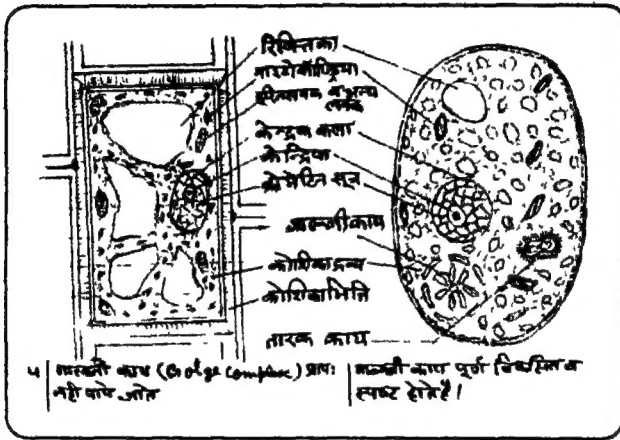 रिक्तिका
माइटोकॉण्ड्रिया
हरितलवक व अन्य
लवक
केन्द्रक कला
केन्द्रिक
क्रोमेटिन सूत्र
गाल्जीकाय
कोशिकाद्रव्य
कोशिकाभित्ति
तारक काय
गाल्जी काय (Golge Complex) प्रायः
नहीं पाये जाते
गाल्जी काय पूर्ण विकसित व
स्पष्ट होते हैं।